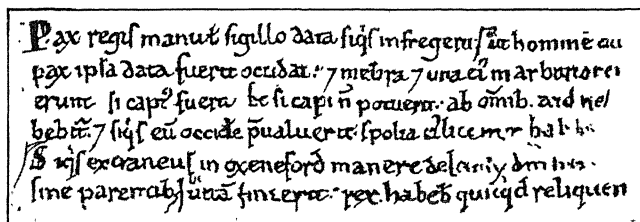 Pax regis manu ł sigillo data siq̇s infregerit, ita ut hominē cui
pax ipsa data fuerit occidat. ⁊ mēbra ⁊ uita ei᷒ in arbitrio rei
erunt si capt᷒ fuerit. et si capi ñ potuerit. ab om̄ib.
hebit̄. ⁊ siq̇s eū occide p̄ualuerit. spolia ei᷒ licent
Siq̇s extraneus in oxeneford manere
sine parentib᷒ uitā finierit. rex habeb̄ quicq̇d reliquerit